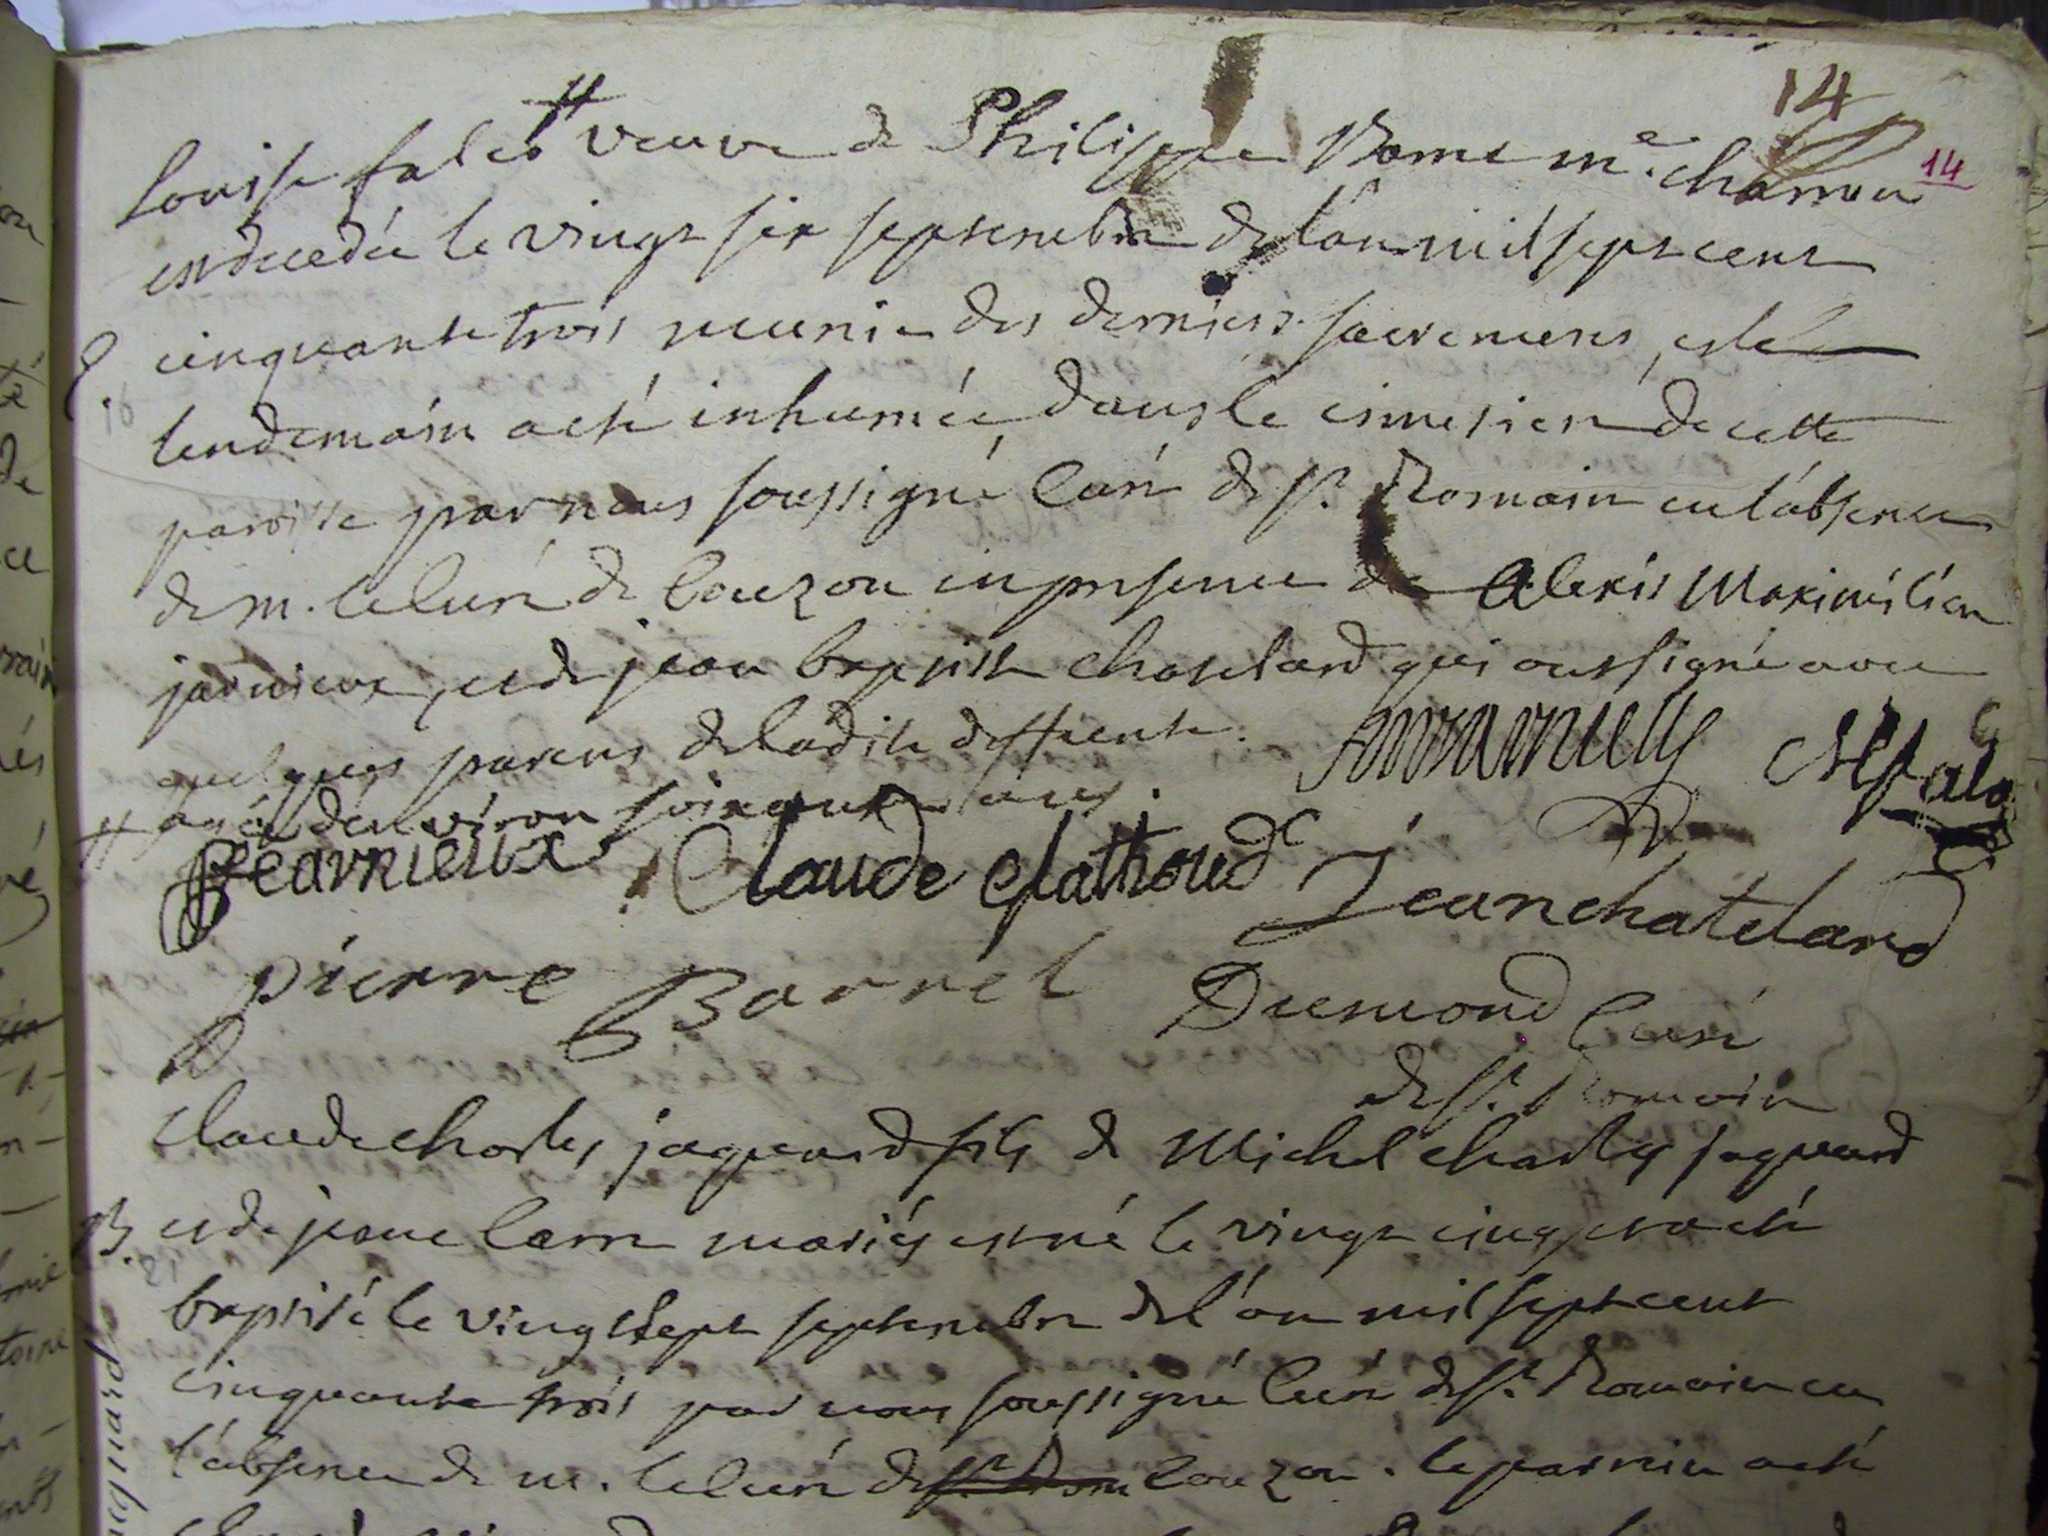 14
14
louise fales # veuve de Philippe Rome me. chamoi
est decedée le vingt six septembre de l'an mil sept cent
cinquante trois munie des derniers sacremens, et le
lendemain a eté inhumée dans le cimetiere de cette
paroisse par nous soussigné Curé de St. Romain en l'absence
de m. le Curé de Couzon en presence de Alexis Maximilien
jarnieux, et de jean baptiste chatelard qui ont signé avec
quelques parens de la dite deffunte.
# agée d'environ soixante ans.
Jearnieux Claude Clathoud Jean chatelard
pierre Barrel Dumond Curé
de St. Romain
Claude charles jaquard fils de Michel charles jaquard
B. et de jeane Cam mariés est né le vingt cinq et a eté
baptisé le vingt sept septembre de l'an mil sept cent
cinquante trois par nous soussigné Curé de St. Romain en
l'absence de m. le Curé de St. Rom Couzon. le parrein a eté